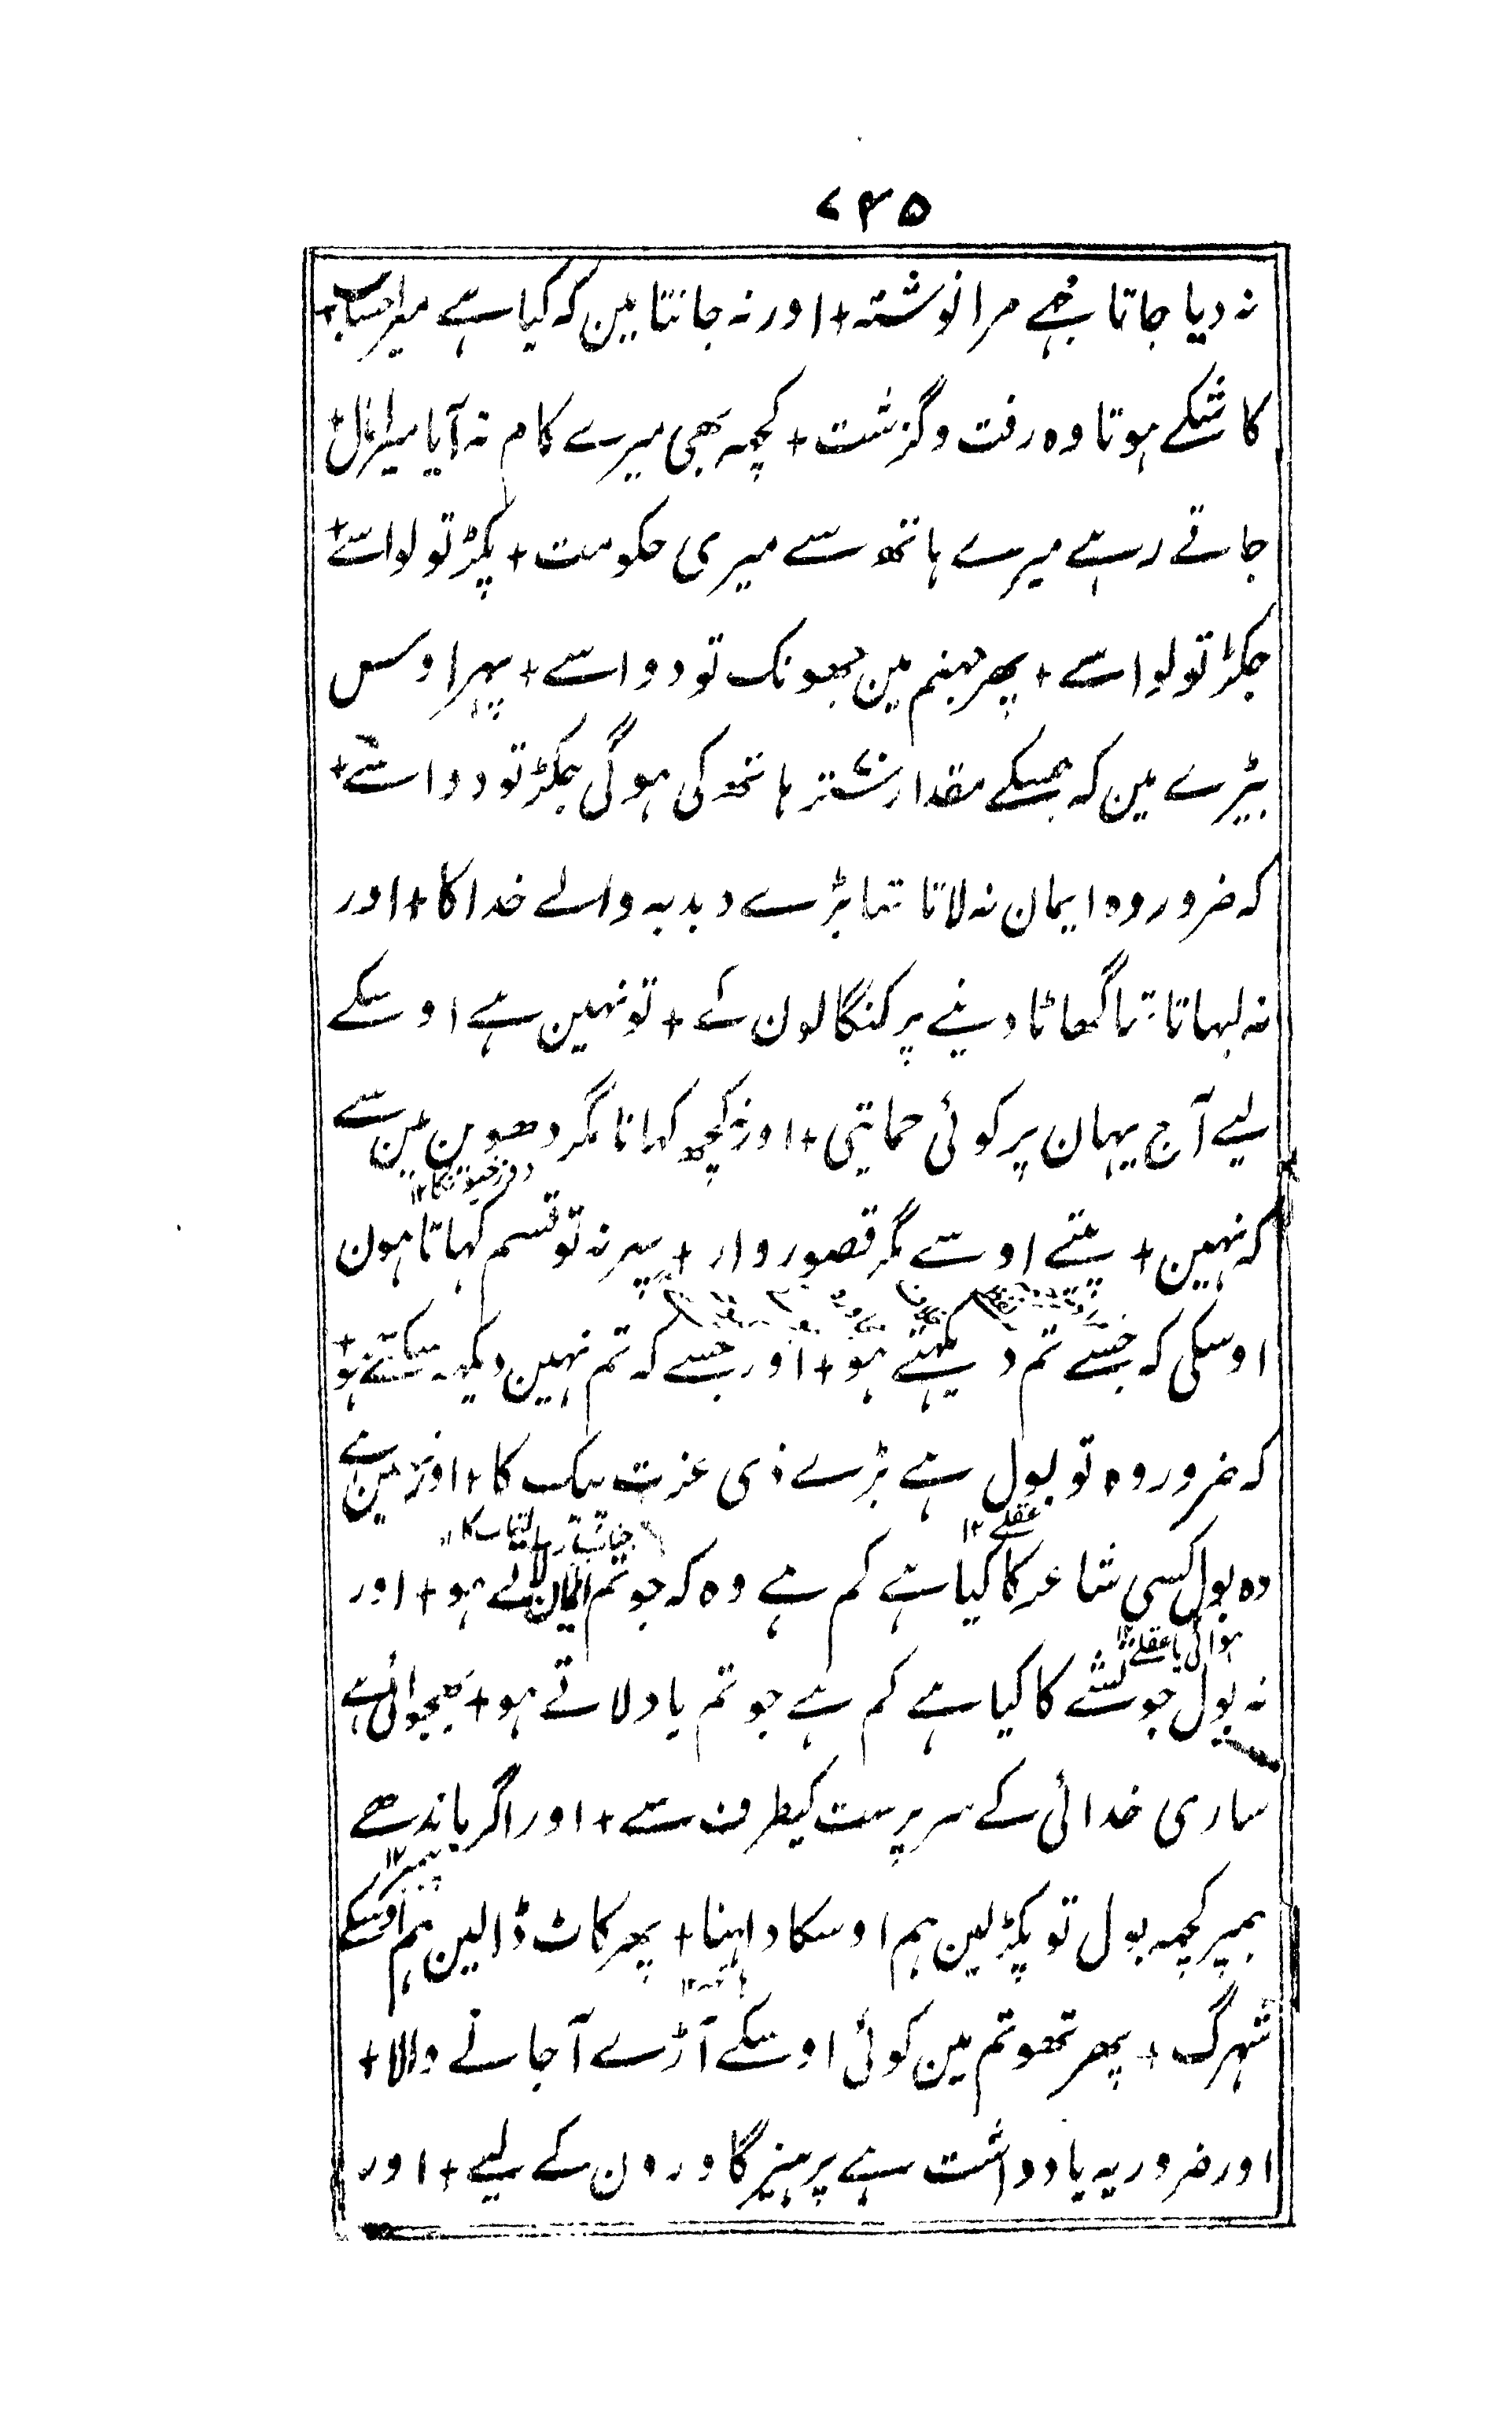 ۷۴۵
نہ دیا جاتا مجھے مرا نوشتہ + اور نہ جانتا مین کہ کیا ہے میرا حساب +
کاشکے ہوتا وہ رفت و گزشت + کچھہ بھی میرے کام نہ آیا میرا مال +
جاتے رہے میرے ہاتھ سے میری حکومت + پکڑ تو لو اسے +
جکڑ تو لو اسے + پھر جہنم مین جھونک تو دو اسے + پہر اوس
بیڑے مین کہ جسکے مقدار ستر ہاتھ کی ہوگی جکڑ تو دو اسے +
کہ ضرور وہ ایمان نہ لاتا تہا بڑے دبدبہ والے خدا کا + اور
نہ لہاتا تہا گھاٹا دینے پر کنگالون کے + تو نہین ہے اوسکے
لیے آج یہان پر کوئی حمایتی + اور نہ کچھ کہانا مگر دھوون مین سے
دوزخیونکا ۱۲
کہ نہین + پیتے اوسے مگر قصور وار + پہر نہ تو قسم کہاتا ہون
اوسکی کہ جسے تم دیکہتے ہو + اور جسے کہ تم نہین دیکہہ سکتے ہو +
کہ ضرور وہ تو بول ہے بڑے ذی عزت پیک کا + اور نہین ہے
عقلے ۱۲
وہ بول کسی شاعر کا کیا ہے کم ہے وہ کہ جو تم ایمان لاتے ہو + اور
ہوائی یا عقلے ۱۲
نہ بول جوتشے کا کیا ہے کم ہے جو تم یاد لاتے ہو + بھجوائی ہے
ساری خدائی کے سرپرست کیطرف سے + اور اگر باندھے
پیمبر ۱۲
ہمپر کچھہ بول تو پکڑ لین ہم اوسکا داہنا + پھر کاٹ ڈالین ہم اوسکے
ہاتھہ ۱۲
شہرگ + پھر تھو تم مین کوئی اوسکے آڑے آجانے والا +
اور ضرور یہ یادداشت ہے پرہیزگاورون کے لیے + اور